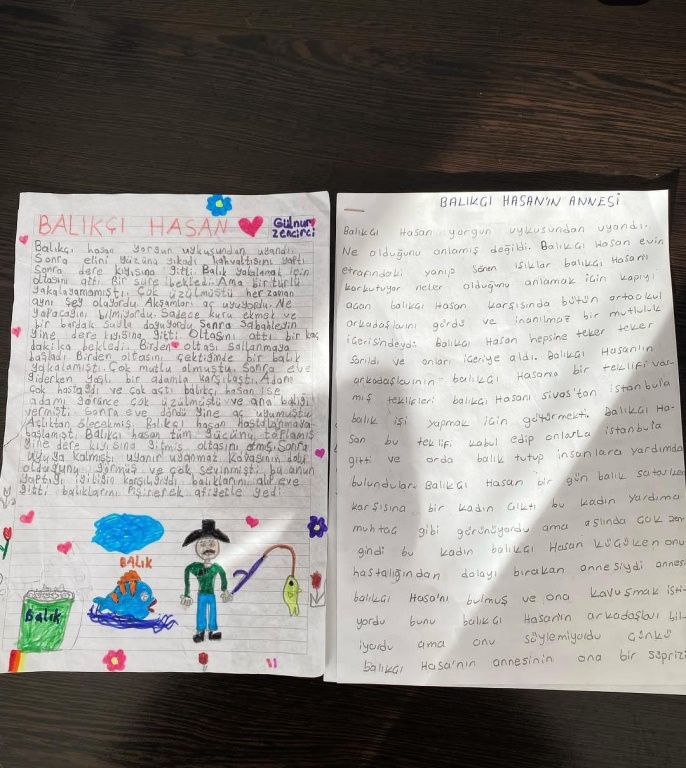 BALIKÇI HASAN
Gülnur
zencirci
Balıkçı hasan yorgun uykusundan uyandı
Sonra elini yüzünü yıkadı kahvaltısını yaptı
Sonra dere kıyısına gitti. Balık yakalamak için
oltasını attı Bir süre bekledi. Ama Bir türlü
yakalayamamıştı. Çok üzülmüştü her zaman
aynı şey oluyordu. Akşamları aç uyuyordu. Ne
yapacağını bilmiyordu. Sadece kuru ekmek ve
bir bardak suyla doyuyordu. Sonra Sabahleyin
yine dere kıyısına gitti. Oltasını attı bir kaç
dakika bekledi. Birden oltası sallanmaya
başladı. Birden oltasını çektiğinde bir balık
yakalamıştı. Çok mutlu olmuştu. Sonra eve
giderken yaşlı bir adamla karşılaştı. Adam
çok hastaydı ve çok açtı balıkçı hasan ise
adamı görünce çok üzülmüştü ve ona balığı
vermişti. Sonra eve döndü yine aç uyumuştu
Açlıktan ölecekmiş. Balıkçı hasan hastalanmaya
başlamıştı. Balıkçı hasan tüm gücünü toplamış
yine dere kıyısına gitmiş oltasını atmış. Sonra
uyuya kalmış. uyanır uyanmaz kovasının dolu
olduğunu görmüş ve çok sevinmişti bu onun
yaptığı iyiliğin karşılığıydı balıklarını alıp eve
gitti balıklarını pişirerek afiyetle yedi
BALIK
Balık
BALIKÇI HASAN'IN ANNESİ
Balıkçı Hasan yorgun uykusundan uyandı.
Ne olduğunu anlamış değildi. Balıkçı Hasan evin
etrafındaki yanıp sönen ışıklar balıkçı Hasanı
korkutuyor neler olduğunu anlamak için kapıyı
açan balıkçı Hasan karşısında bütün ortaokul
arkadaşlarını gördü ve inanılmaz bir mutluluk
içerisindeydi. Balıkçı Hasan hepsine teker teker
sarıldı ve onları içeriye aldı. Balıkçı Hasanın
arkadaşlarının balıkçı Hasana bir teklifi var-
mış teklifleri balıkçı Hasanı sivas'tan istanbula
balık işi yapmak için götürmekti. Balıkçı Ha-
san bu teklifi kabul edip onlarla istanbula
gitti ve orda balık tutup insanlara yardımda
bulundular. Balıkçı Hasan bir gün balık satarken
karşısına bir kadın çıktı bu kadın yardıma
muhtaç gibi görünüyordu ama aslında çok zen
gindi bu kadın balıkçı Hasan küçüken onu
hastalığından dolayı bırakan annesiydi annesi
balıkçı Hasa'nı bulmuş ve ona kavuşmak isti-
yordu bunu balıkçı Hasan'ın arkadaşları bil-
iyordu ama onu söylemiyordu çünkü
balıkçı Hasa'nın annesinin ona bir süprizi